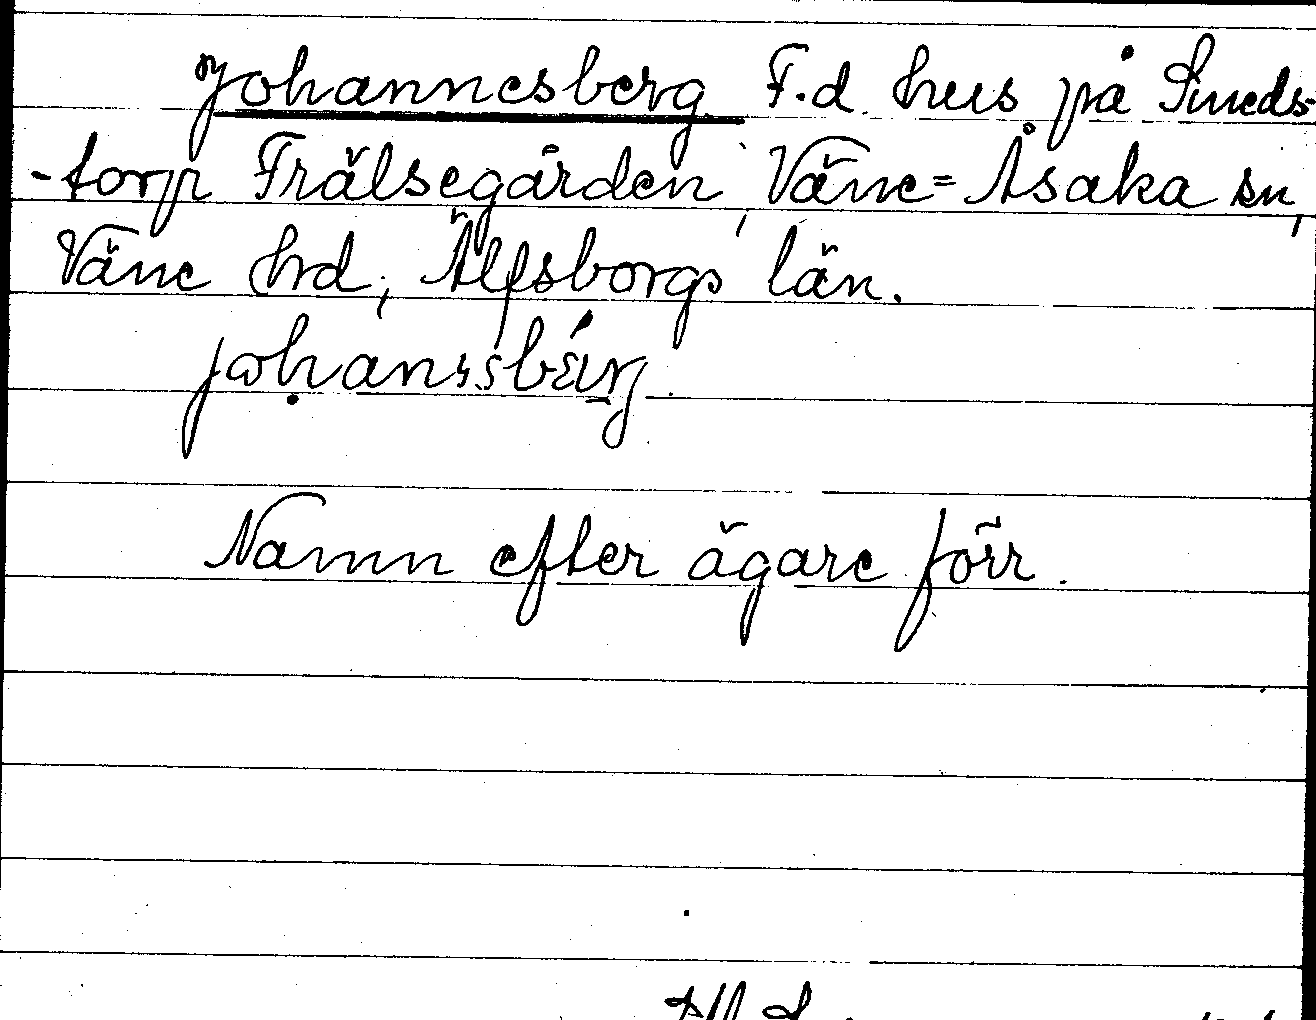 Johannesberg F.d. hus på Smeds-
-torp Frälsegården, Väne=Åsaka sn,
Väne hrd, Älfsborgs län.
Namn efter ägare förr.